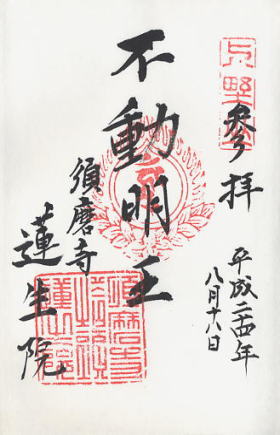 参拝
平成二十四年
八月十八日
不動明王
須磨寺
蓮生院